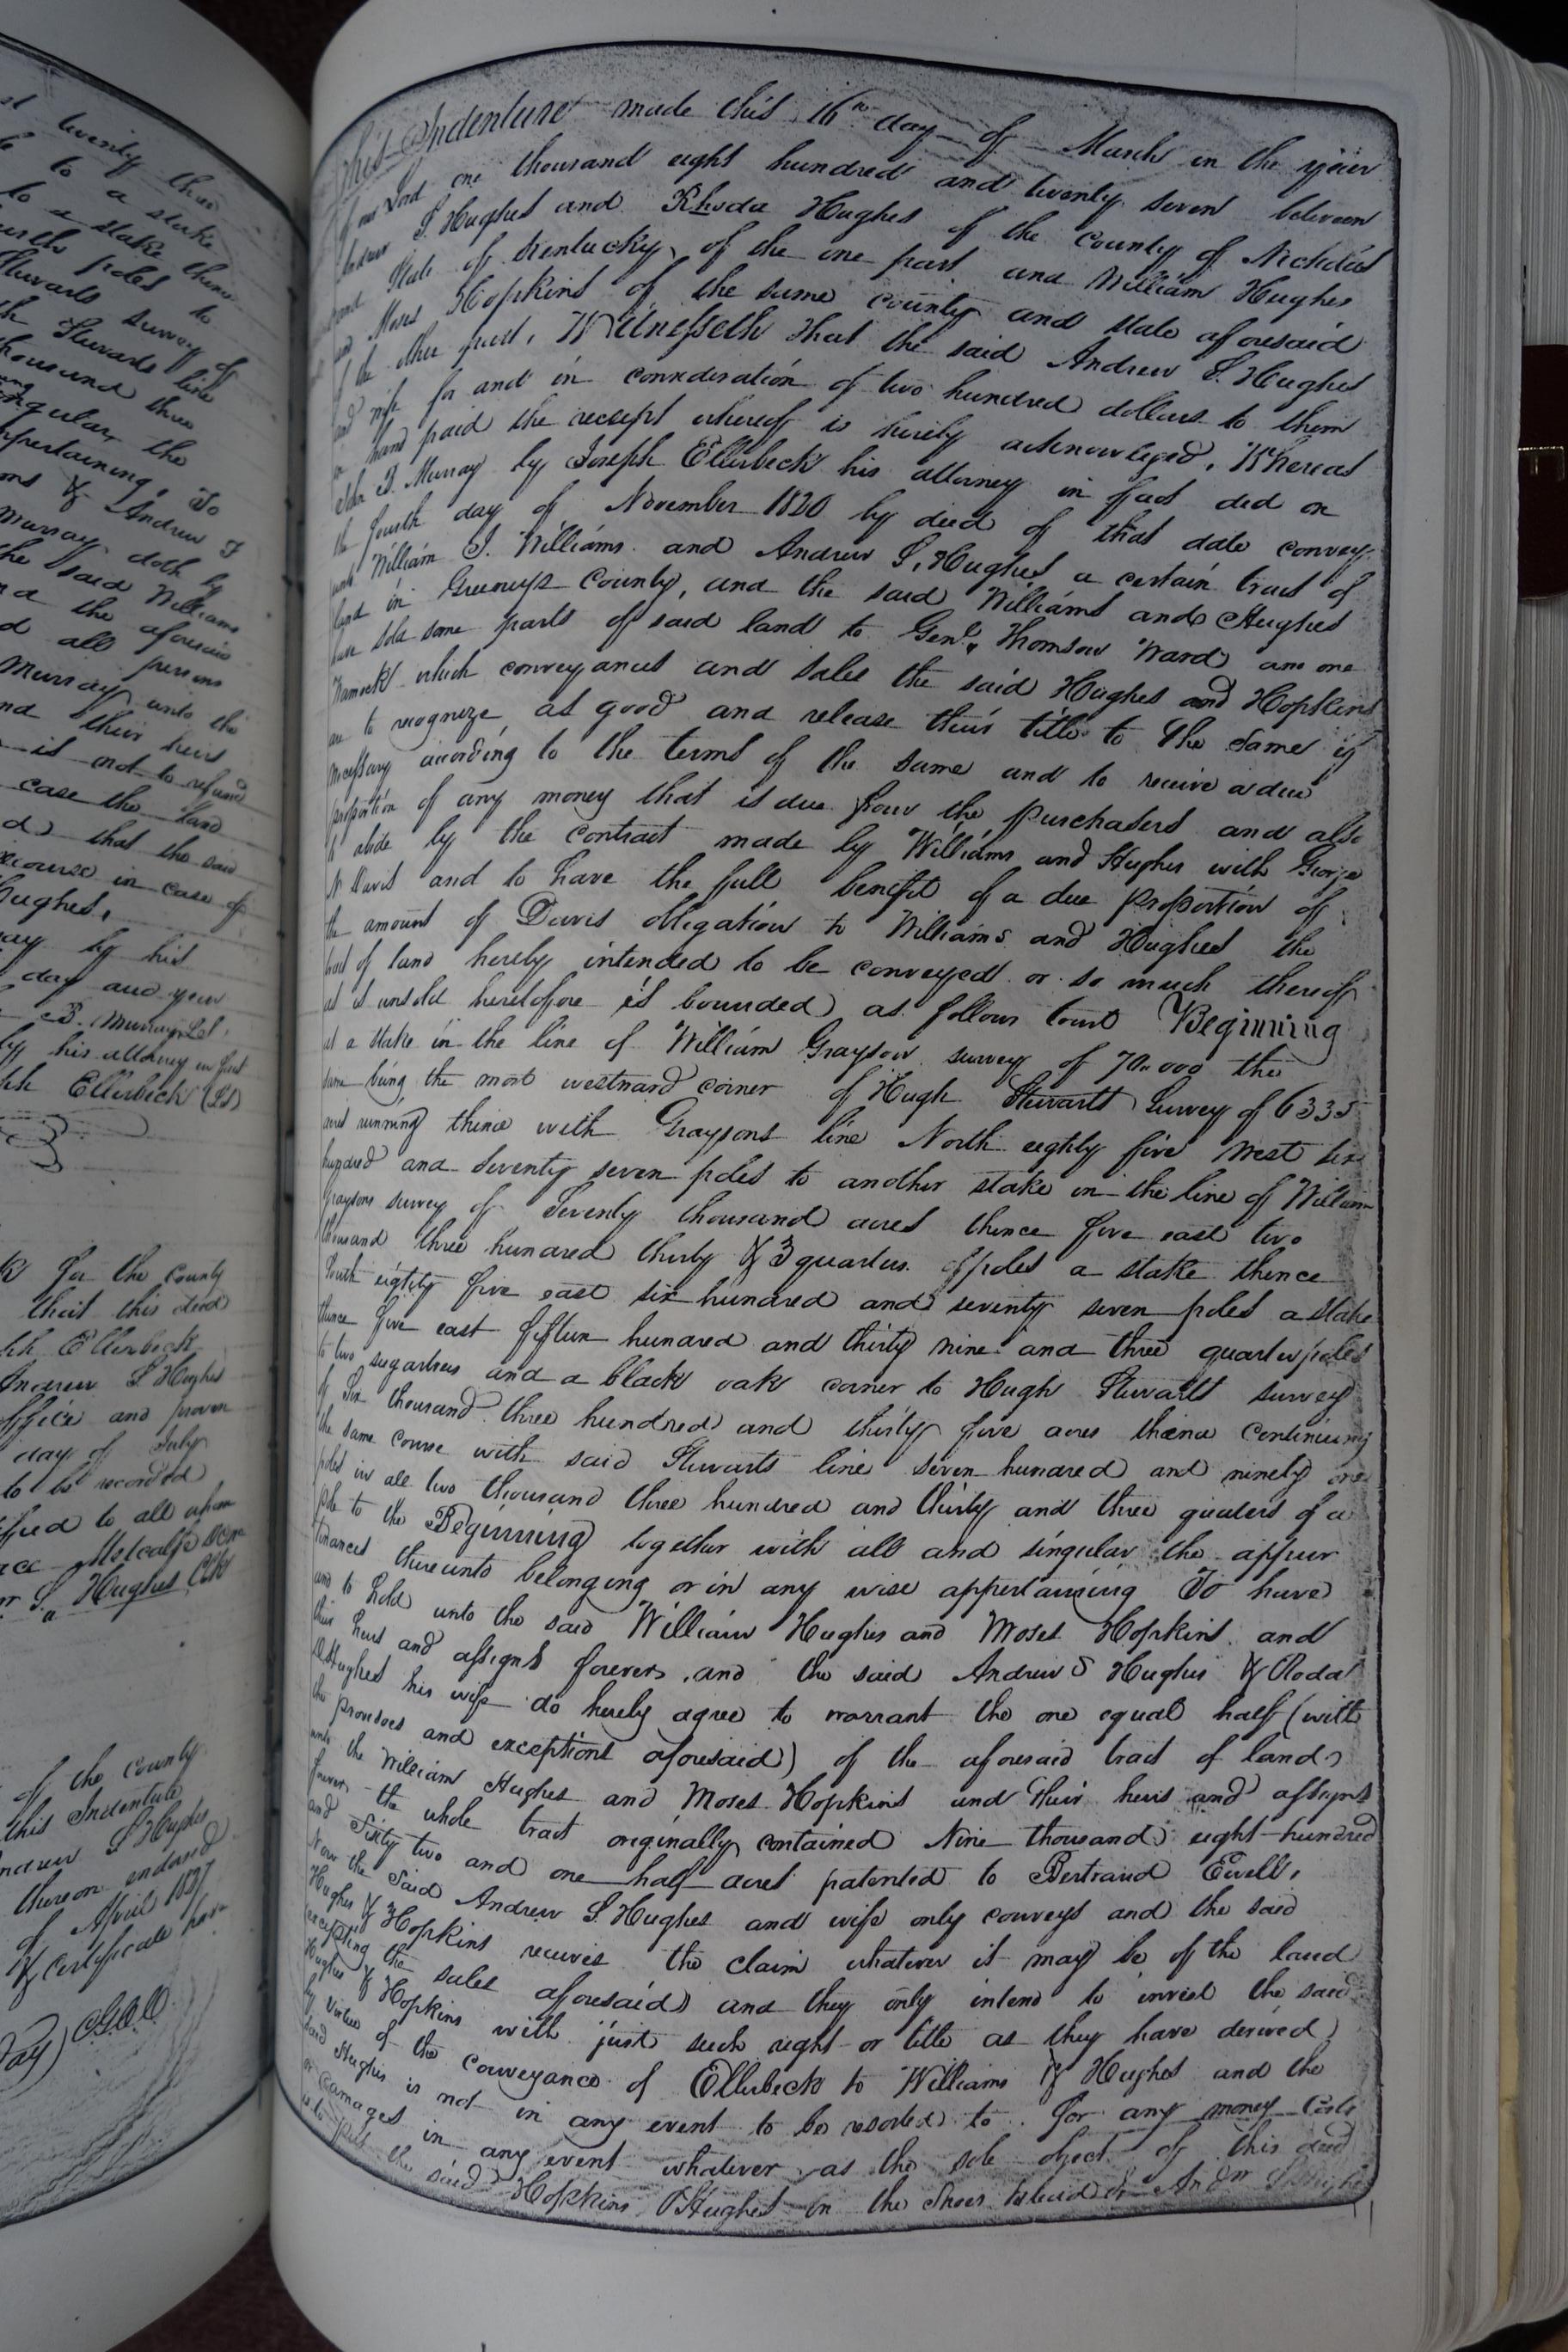 twenty three
to a stake
to a stake thence
poles to
Stewarts survey of
Stewards line
thousand three
the
appertaining, To
& Andrew S
Murray doth by
the said Williams
the aforesaid
all persons
Murray unto the
and their heirs
is not to refund
case the land
that the said
recourse in case of
Hughes,
by his
day and year
B. Murray
by his attorney in fact
Ellerbeck (LS)
for the County
that this deed
Ellerbeck
Andrew S Hughes
office and proven
day of July
to be recorded
to all whom
Metcalfe
S. Hughes Clk
of the County
this Indenture
Andrew S Hughes
thereon endorsed
of April 1827
& certificate have
This Indenture made this 16th day of March in the year
of our Lord one thousand eight hundred and twenty seven between
Andrew S. Hughes and Rhoda Hughes of the county of Nicholas
and State of Kentucky, of the one part and William Hughes
and Moses Hopkins of the same county and state aforesaid
of the other part, Witnesseth that the said Andrew S. Hughes
and wife for and in consideration of two hundred dollars to them
in hand paid the receipt whereof is hereby acknowleged, Whereas
John B. Murray by Joseph Ellerbeck his attorney in fact did on
the fourth day of November 1820 by deed of that date convey
unto William J. Williams and Andrew S. Hughes a certain tract of
land in Greenups County, and the said Williams and Hughes
have sold some parts of said land to Genl. Thomson Ward and one
Wamock which conveyances and sales the said Hughes and Hopkins
are to recognize as good and release their title to the same if
necessary according to the terms of the same and to receive a due
proportion of any money that is due from the purchasers and also
to abide by the contract made by Williams and Hughes with George
N Davis and to have the full benefit of a due proportion of
the amount of Davis obligation to Williams and Hughes the
tract of land hereby intended to be conveyed or so much thereof
as is unsold heretofore is bounded as follows towit Beginning
at a stake in the line of William Grayson survey of 70.000 the
same being the most westward corner of Hugh Stewarts Survey of 6335
and running thence with Graysons line North eighty five West six
hundred and seventy seven poles to another stake in the line of William
Graysons survey of Seventy thousand acres thence five east two
thousand three hundred thirty & 3 quarters of poles a stake thence
South eighty five east six hundred and seventy seven poles a stake
thence five east fifteen hundred and thirty nine and three quarter poles
to two sugartrees and a black oak corner to Hugh Stewarts survey
of Six thousand three hundred and thirty five acres thence continuing
the same course with said Stewarts line seven hundred and ninety one
poles in all two thousand three hundred and thirty and three quaters of a
pole to the Beginning together with all and singular the appur
tenances thereunto belonging or in any wise appertaining To have
and to hold unto the said William Hughes and Moses Hopkins and
their heirs and assigns forever, and the said Andrew S Hughes & Roda
Hughes his wife do hereby agree to warrant the one equal half (with
the provisoes and exceptions aforesaid) of the aforesaid tract of land
unto the William Hughes and Moses Hopkins and their heirs and assigns
forever the whole tract originally contained Nine thousand eight hundred
and Sixty two and one half acres patented to Bertrand Ewell,
Now the Said Andrew S. Hughes and wife only conveys and the said
Hughes & Hopkins receives the claim whatever it may be of the land
(excepting the sales aforesaid) and they only intend to invest the said
Hughes & Hopkins with just such right or title as they have derived
by virtue of the conveyance of Ellerbeck to Williams & Hughes and the
said Hughes is not in any event to be resorted to for any money Costs
or damages in any event whatever as the sole object of this deed
is to put the said Hopkins & Hughes in the Shoes Andw S Hughes